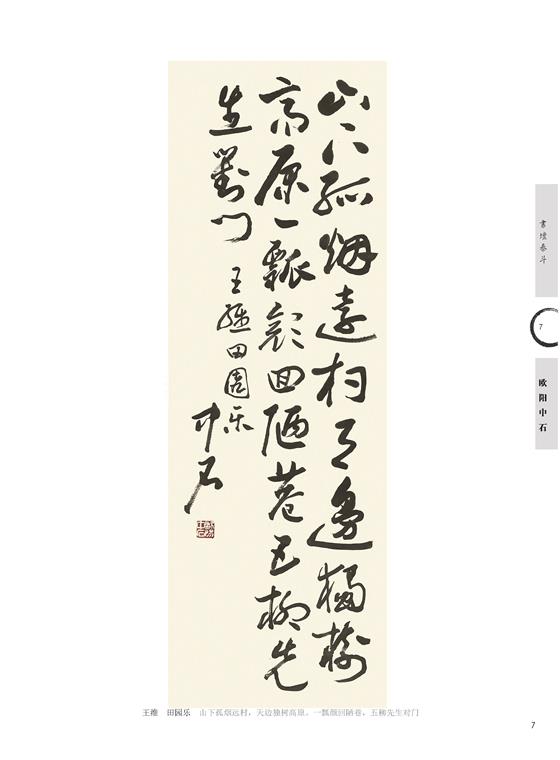 山下孤烟遠村天邊獨樹
高原一瓢顏回陋巷五柳先
生對门
王維田園乐
中石
書壇泰斗
7
欧阳中石
王维 田园乐 山下孤烟远村，天边独树高原。一瓢颜回陋巷，五柳先生对门
7